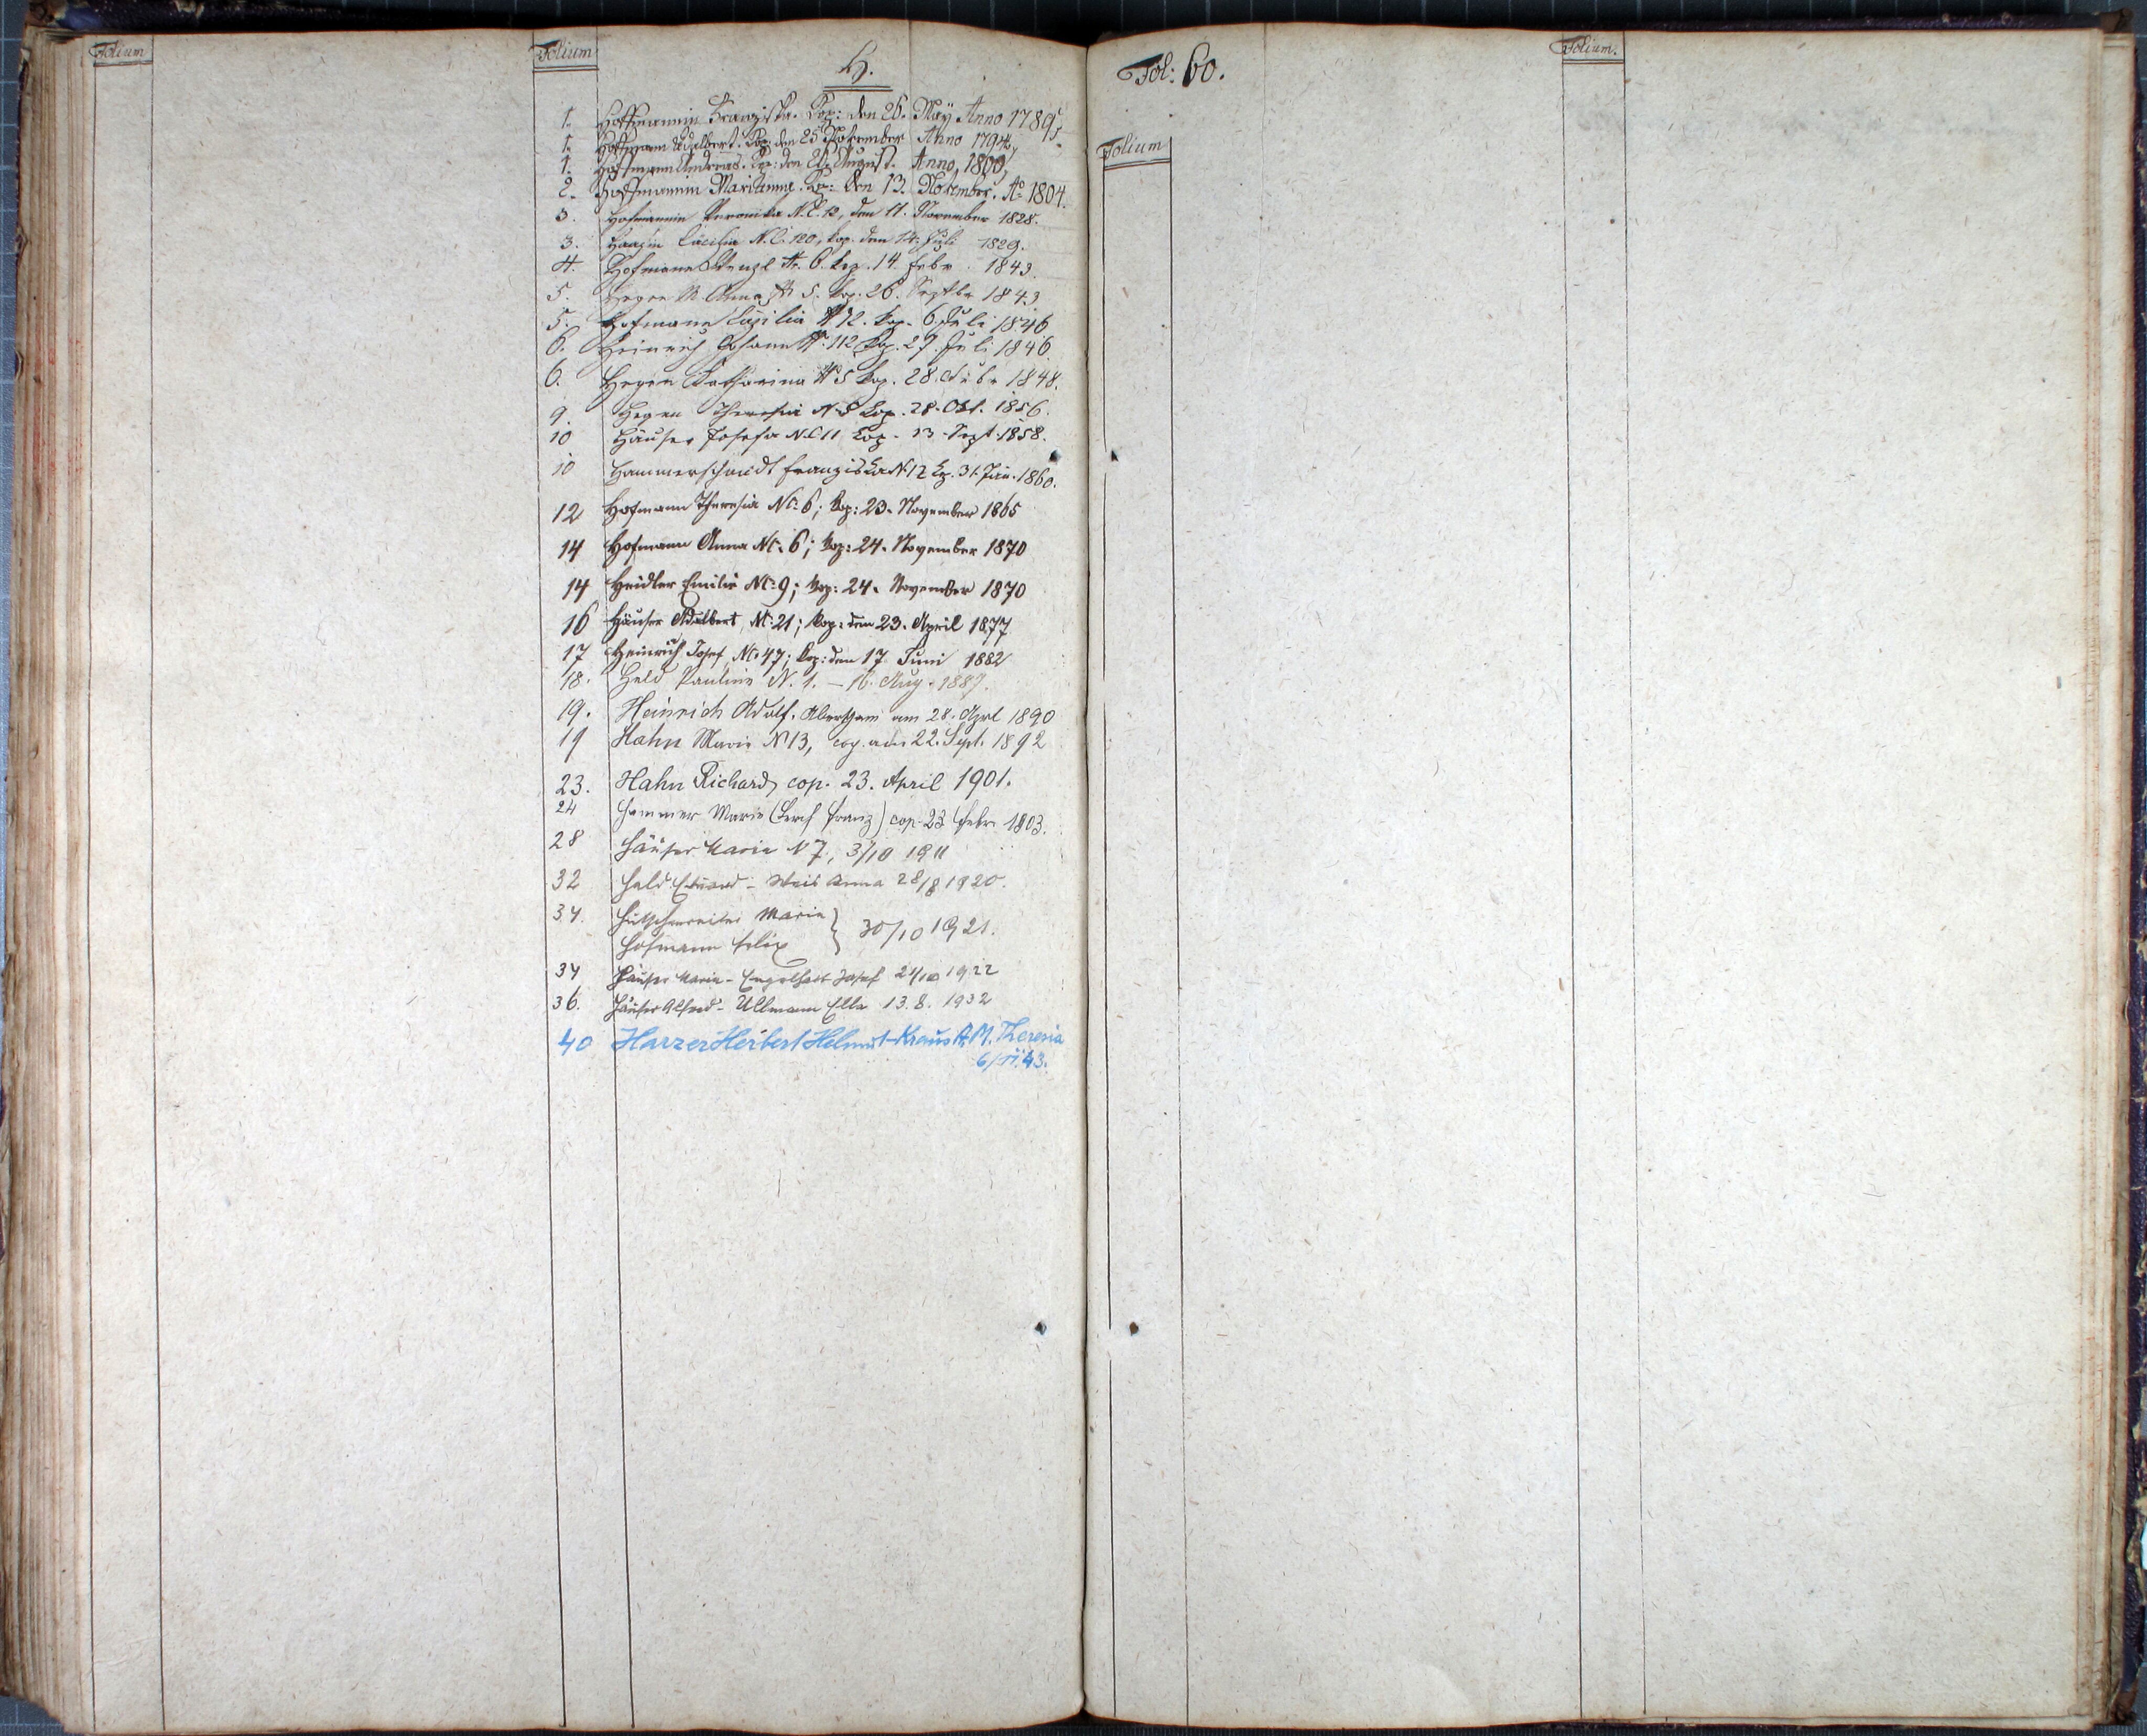 Folium
Folium
H.
1. Hoffmannin Franziska. Cop: den 26. Maÿ Anno 1789.
1. Hoffmann Adalbert. Cop: den 25 November Anno 1794.
1. Hoffmann Andreas. Cop: den August. Anno, 1800,
2. Hoffmannin Marianna. Cop: den 13. November. Aọ 1804.
3. Hofmannin Veronika N.C. 12, den 11. November 1828.
3. Cäcilia N.C. 120, kop. den 14. Juli 1829.
4. Hofmann Wenzl N. 6. kop. 14. Febr. 1843.
5. Heger M. Anna N 5. kop. 26. Septbr 1843
5. Hofmann Cäzilia N 12. kop. 6. Juli 1846
6. Heinrich Johann N. 112 kop. 27. Juli 1846.
6. Heger Katharina N 5 kop. 28. 1848.
9. Heger Theresia N 5 kop. 28. Okt. 1856.
10 Häuser Josefa N.C 11 kop. 13. Sept. 1858.
10 Hammerschmidt Franziska N 12 kop. 31. Jän. 1860.
12 Hofmann Theresia NC: 6; kop: 23. November 1865
14 Hofmann Anna NC: 6; kop: 24. November 1870
14 Heidler Emilie NC: 9; kop: 24. November 1870
16 Häuser Adalbert, NC: 21; kop: den 23. April 1877
17 Heinrich Josef, NC: 47; kop: den 17. Juni 1882
18. Held Pauline N. 1. – 16. Aug. 1887.
19. Heinrich Adolf. Abertham am 28. Aprl 1890
19 Hahn Marie N 13, cop. am 22. Sept. 1892
23. Hahn Richard, cop. 23. April 1901.
24 Hammer Marie (Lerch Franz) cop. 23 Febr. 1903.
28 Häuser Maria N 7, 3/10 1911
32 Held Eduard – Weis Anna 28/8 1920.
34. Marie } 30/10 1921.
Hofmann Felix
34 Häuser Maria – Engelhart Josef 24/10 1922
36. Häuser Alfred – Ullmann Ella 13. 8. 1932
40 Harzer Herbert Helmut – Kraus A. M. Theresia
6/ 43.
Fol: 60.
Folium
Folium.